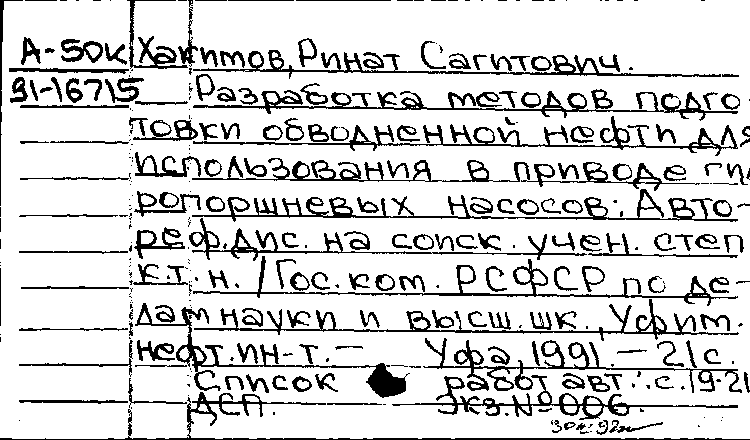 А-50к Хакимов, Ринат Сагитович.
91-16715 Разработка методов подго-
товки обводненной нефти для
использования в приводе гид
ропоршневых насосов: Авто-
реф. дис. на соиск. учен. степ
к.т.н. / Гос. ком. РСФСР по де-
лам науки и высш. шк., Уфим.
нефт. ин-т. – Уфа, 1991. – 21 с.
Список работ авт.: с. 19-21
ДСП. Экз. № 006.